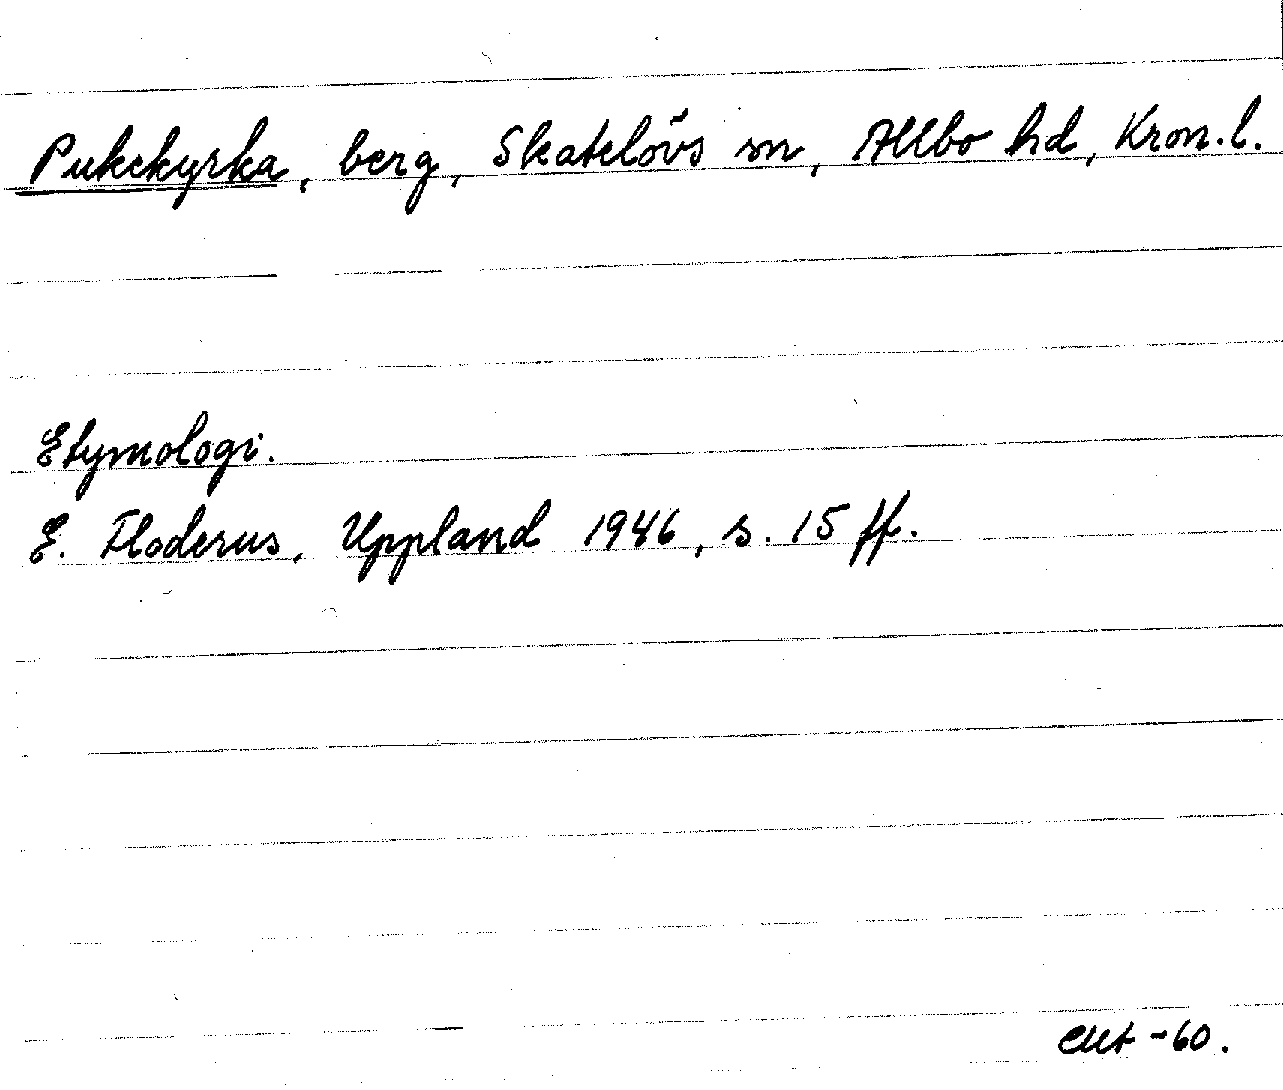 Pukekyrka, berg, Skatelövs sn, Allbo hd, Kron.l.
Etymologi.
E. Floderus, Uppland 1946, s. 15 ff.
-60.